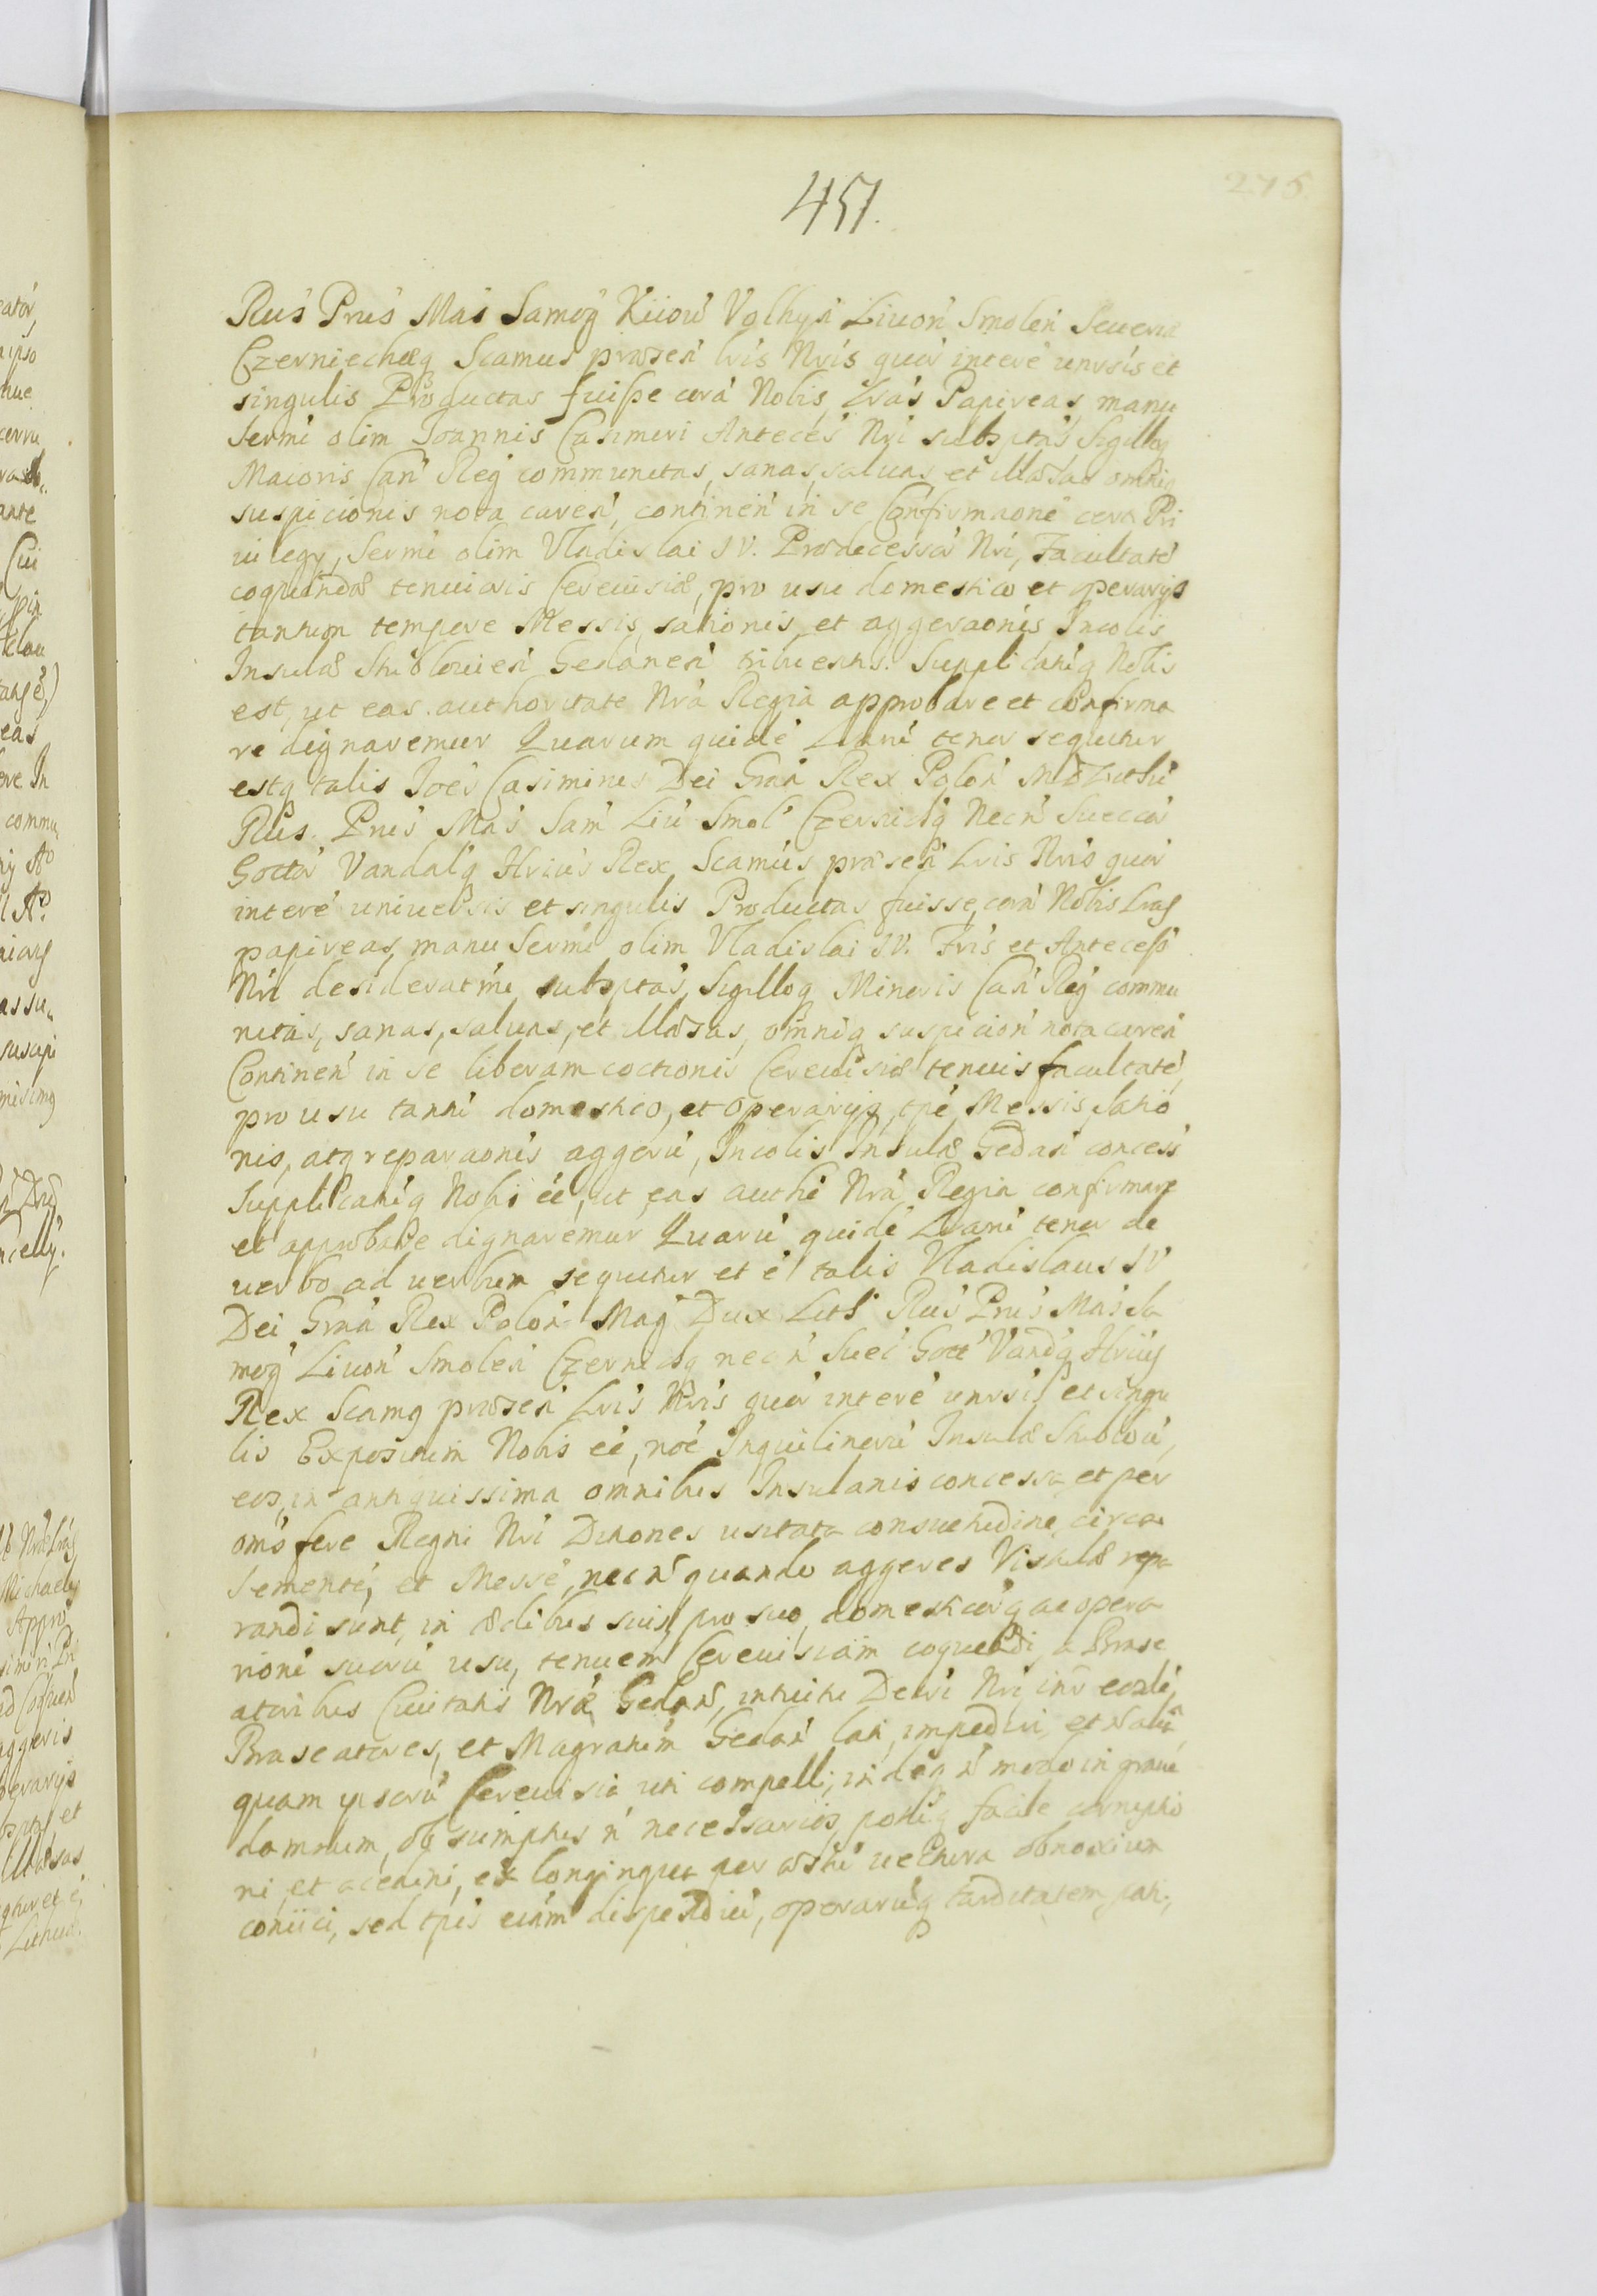 451.
275.
Rus Prus Mas Samog Kiiow Volhyń Livoń Smoleń Severiæ
Czerniechæq Scamus præseń lris Nris quor interē unvsis et
singulis Productas fuisse corá Nobis Lras Papireas manu
Sermi olim Joannis Casimiri Anteces Nri subsptas Sigilloq
Maioris Can Reg communitas, sanas, saluas, et illæsas omniq
suspicionis nota careń, continen in se Confirmaonē certi Pri
uilegy, Sermi olim Vladislai IV. Prædecessor Nri, Facultatē
coquendæ tenuioris Cereuisiæ, pro usu domestico et operarys
tantum tempore Messis, sationis, et aggeraonis Incolis
Insulæ Stublouień Gedaneń tribuentis. Supplicatūq Nobis
est, ut eas authoritate Nrá Regiá approbare et confirma
re dignaremur Quarum quidē Lrarū tenor sequitur
estq talis Joēs Casimirus Dei Grá Rex Poloń MD Lithū
Rus. Prus Mas Sam Liu Smol Czernieq Necń Suecor
Gottor Vandalq Hrius Rex Scamus præseń Lris Nris quor
interē uniuersis et singulis Productas fuisse, corá Nobis Lras
papireas, manu Sermi olim Vladislai IV. Fris et Antecess
Nri desideratmi subsptas, Sigilloq Minoris Cań Reg commu
nitas, sanas, saluas, et illæsas, omniq suspicioń nota careń
Continen in se liberam coctionis Cereuisiæ tenuis facultatē,
pro usu tantū domestico, et operarysq, tpē Messis Satio
nis, atq reparaonis aggerū, Incolis Insulæ Gedań concess
Supplicatūq Nobis ēē, ut eas authē Nrá Regiá confirmare
et approbare dignaremur Quarū quidē Lrarū tenor de
uerbo ad uerbum sequitur et ē talis Vladislaus IV
Dei Grá Rex Poloń Mag Dux Lith Rus Prus Mas Sa
mog Liuoń Smoleń Czernieq necń Suec Gott Vandq Hrius
Rex Scamq præseń Lris Nris quor interē unvsis et singu
lis Expositum Nobis ēē, noē Inquilinorū Insulæ Stublow,
eos, in antiquissima omnibus Insulanis concessa et per
omēs fere Regni Nri Ditiones usitata consuetudine, circa
Sementē, et Messē, necń quando aggeres Vistulæ repa
randi sunt, in ædibus suis, pro suo, domesticorq ac opera
riorū suorū usu, tenuem Cereuisiam coquendi, a Brase
atoribus Ciuitatis Nræ Gedań, intuitu Decri Nri inr eosdē,
Braseatores, et Magratum Gedań lati, impediri, et
quam ipsorū Cereuisia uti compelli, indeq ń modo in graue
damnum, ob sumptus ń necessarios, potūq facile corruptio
ni et acedini, ex longinqua per æstū uectura obnoxium
coniici, sed tpis eiám dispendiū, operarūq tarditatem pati,